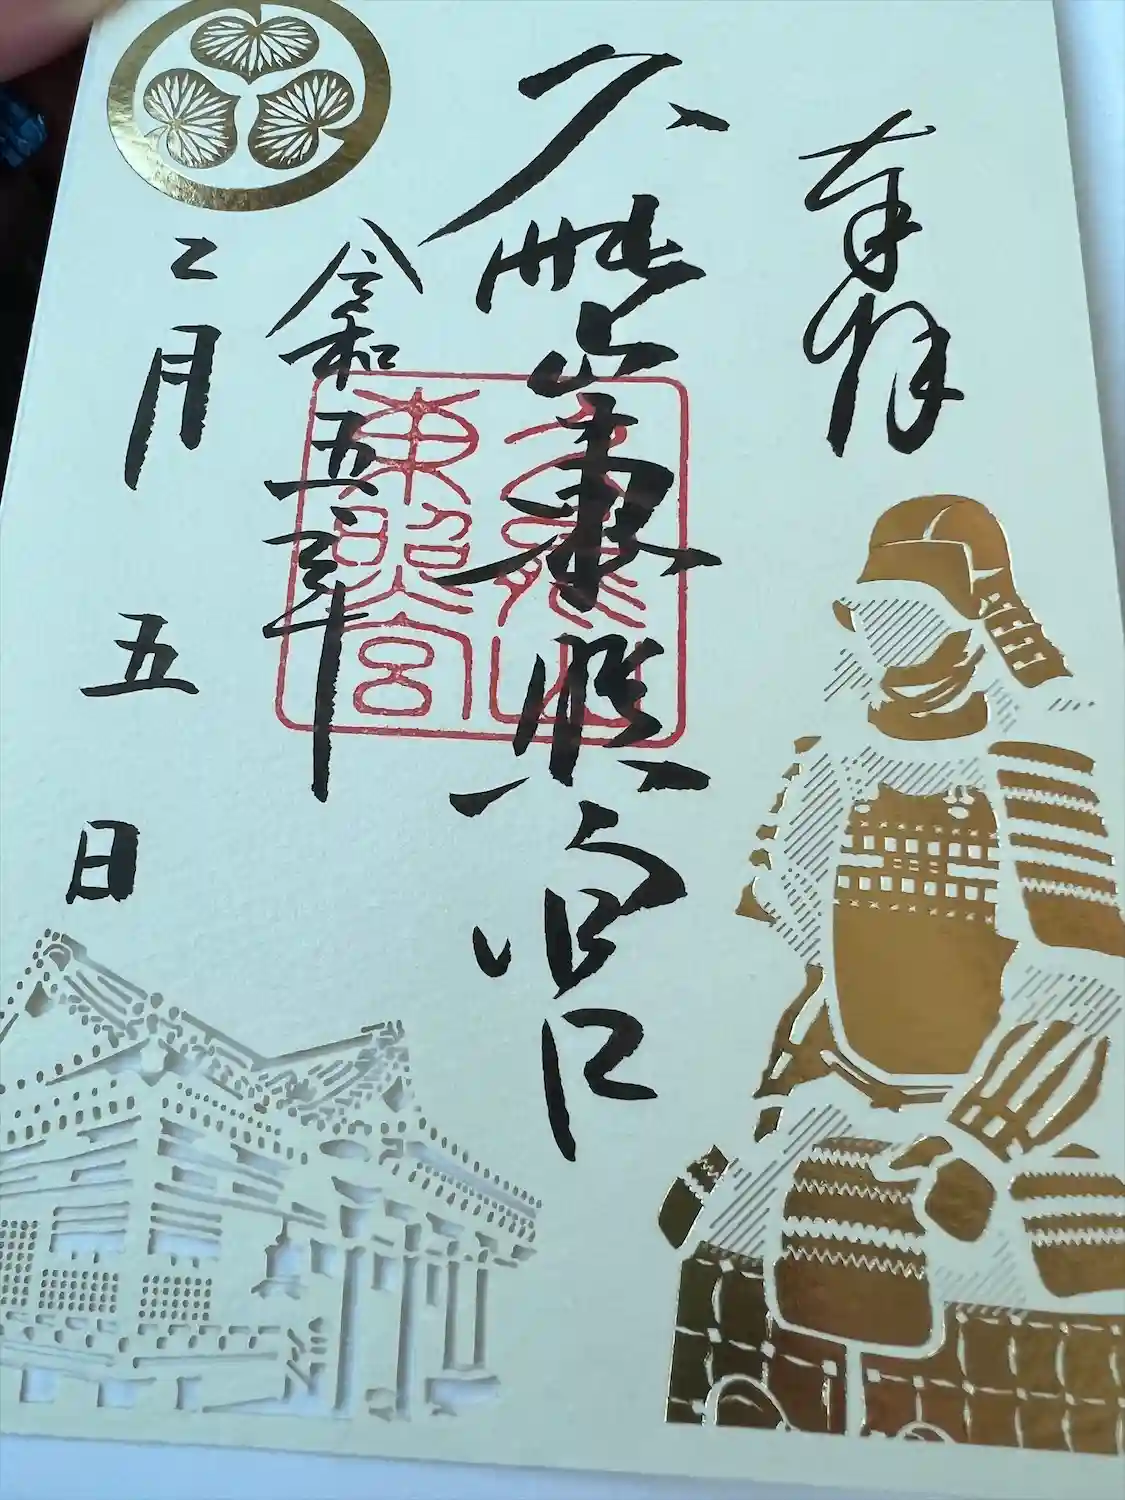 奉拝
久能山東照宮
久能山
東照宮
令和五年
二月五日